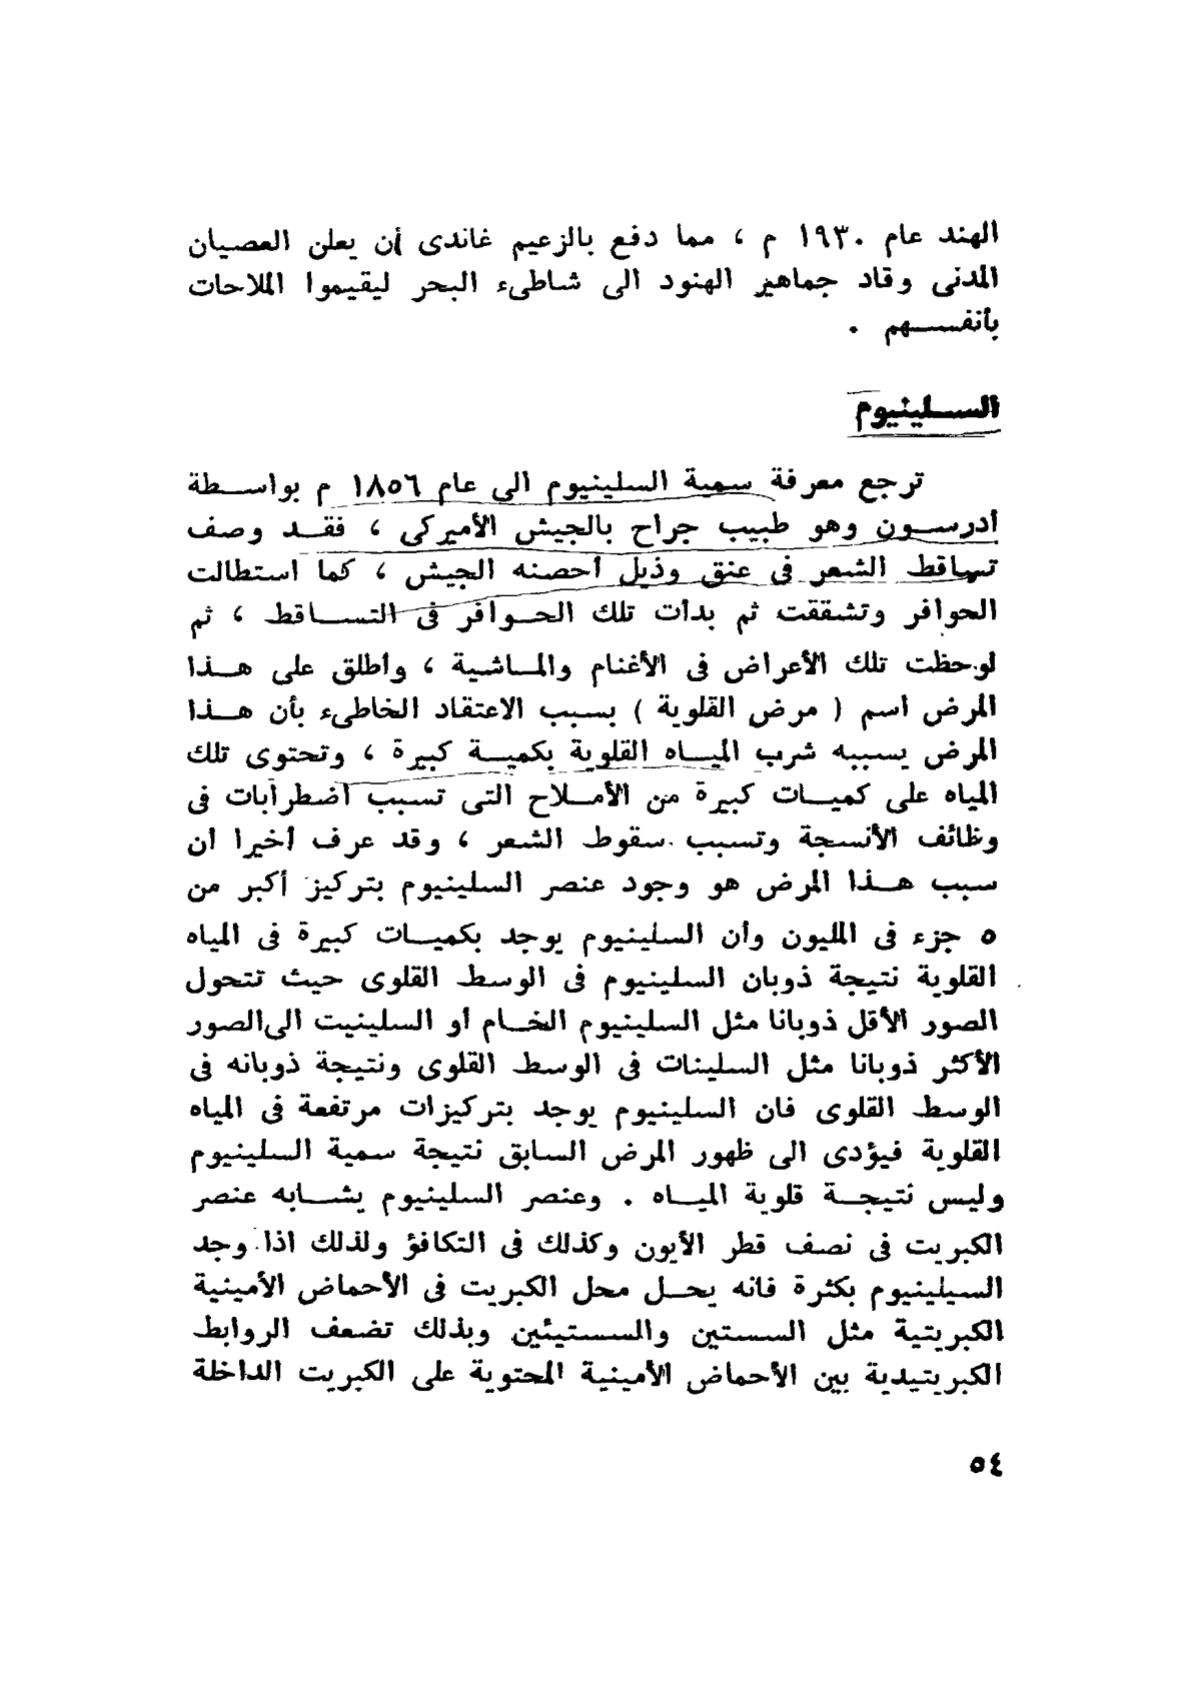 الهند عام ١٩٣٠ م ، مما دفع بالزعيم غاندى أن يعلن العصيان
المدنى وقاد جماهير الهنود الى شاطىء البحر ليقيموا الملاحات
بأنفسهم .
السلينيوم
ترجع معرفة سمية السلينيوم الى عام ١٨٥٦ م بواسطة
أدرسون وهو طبيب جراح بالجيش الأميركى ، فقد وصف
تساقط الشعر فى عنق وذيل أحصنه الجيش ، كما استطالت
الحوافر وتشققت ثم بدأت تلك الحوافر فى التساقط ، ثم
لوحظت تلك الأعراض فى الأغنام والماشية ، وأطلق على هذا
المرض اسم ( مرض القلوية ) بسبب الاعتقاد الخاطىء بأن هذا
المرض يسببه شرب المياه القلوية بكمية كبيرة ، وتحتوى تلك
المياه على كميات كبيرة من الأملاح التى تسبب اضطرابات فى
وظائف الأنسجة وتسبب سقوط الشعر ، وقد عرف أخيرا ان
سبب هذا المرض هو وجود عنصر السلينيوم بتركيز أكبر من
٥ جزء فى المليون وأن السلينيوم يوجد بكميات كبيرة فى المياه
القلوية نتيجة ذوبان السلينيوم فى الوسط القلوى حيث تتحول
الصور الأقل ذوبانا مثل السلينيوم الخام أو السلينيت الى الصور
الأكثر ذوبانا مثل السلينات فى الوسط القلوى ونتيجة ذوبانه فى
الوسط القلوى فان السلينيوم يوجد بتركيزات مرتفعة فى المياه
القلوية فيؤدى الى ظهور المرض السابق نتيجة سمية السلينيوم
وليس نتيجة قلوية المياه . وعنصر السلينيوم يشابه عنصر
الكبريت فى نصف قطر الأيون وكذلك فى التكافؤ ولذلك اذا وجد
السيلينيوم بكثرة فانه يحل محل الكبريت فى الأحماض الأمينية
الكبريتية مثل السستين والسستيئين وبذلك تضعف الروابط
الكبريتيدية بين الأحماض الأمينية المحتوية على الكبريت الداخلة
٥٤